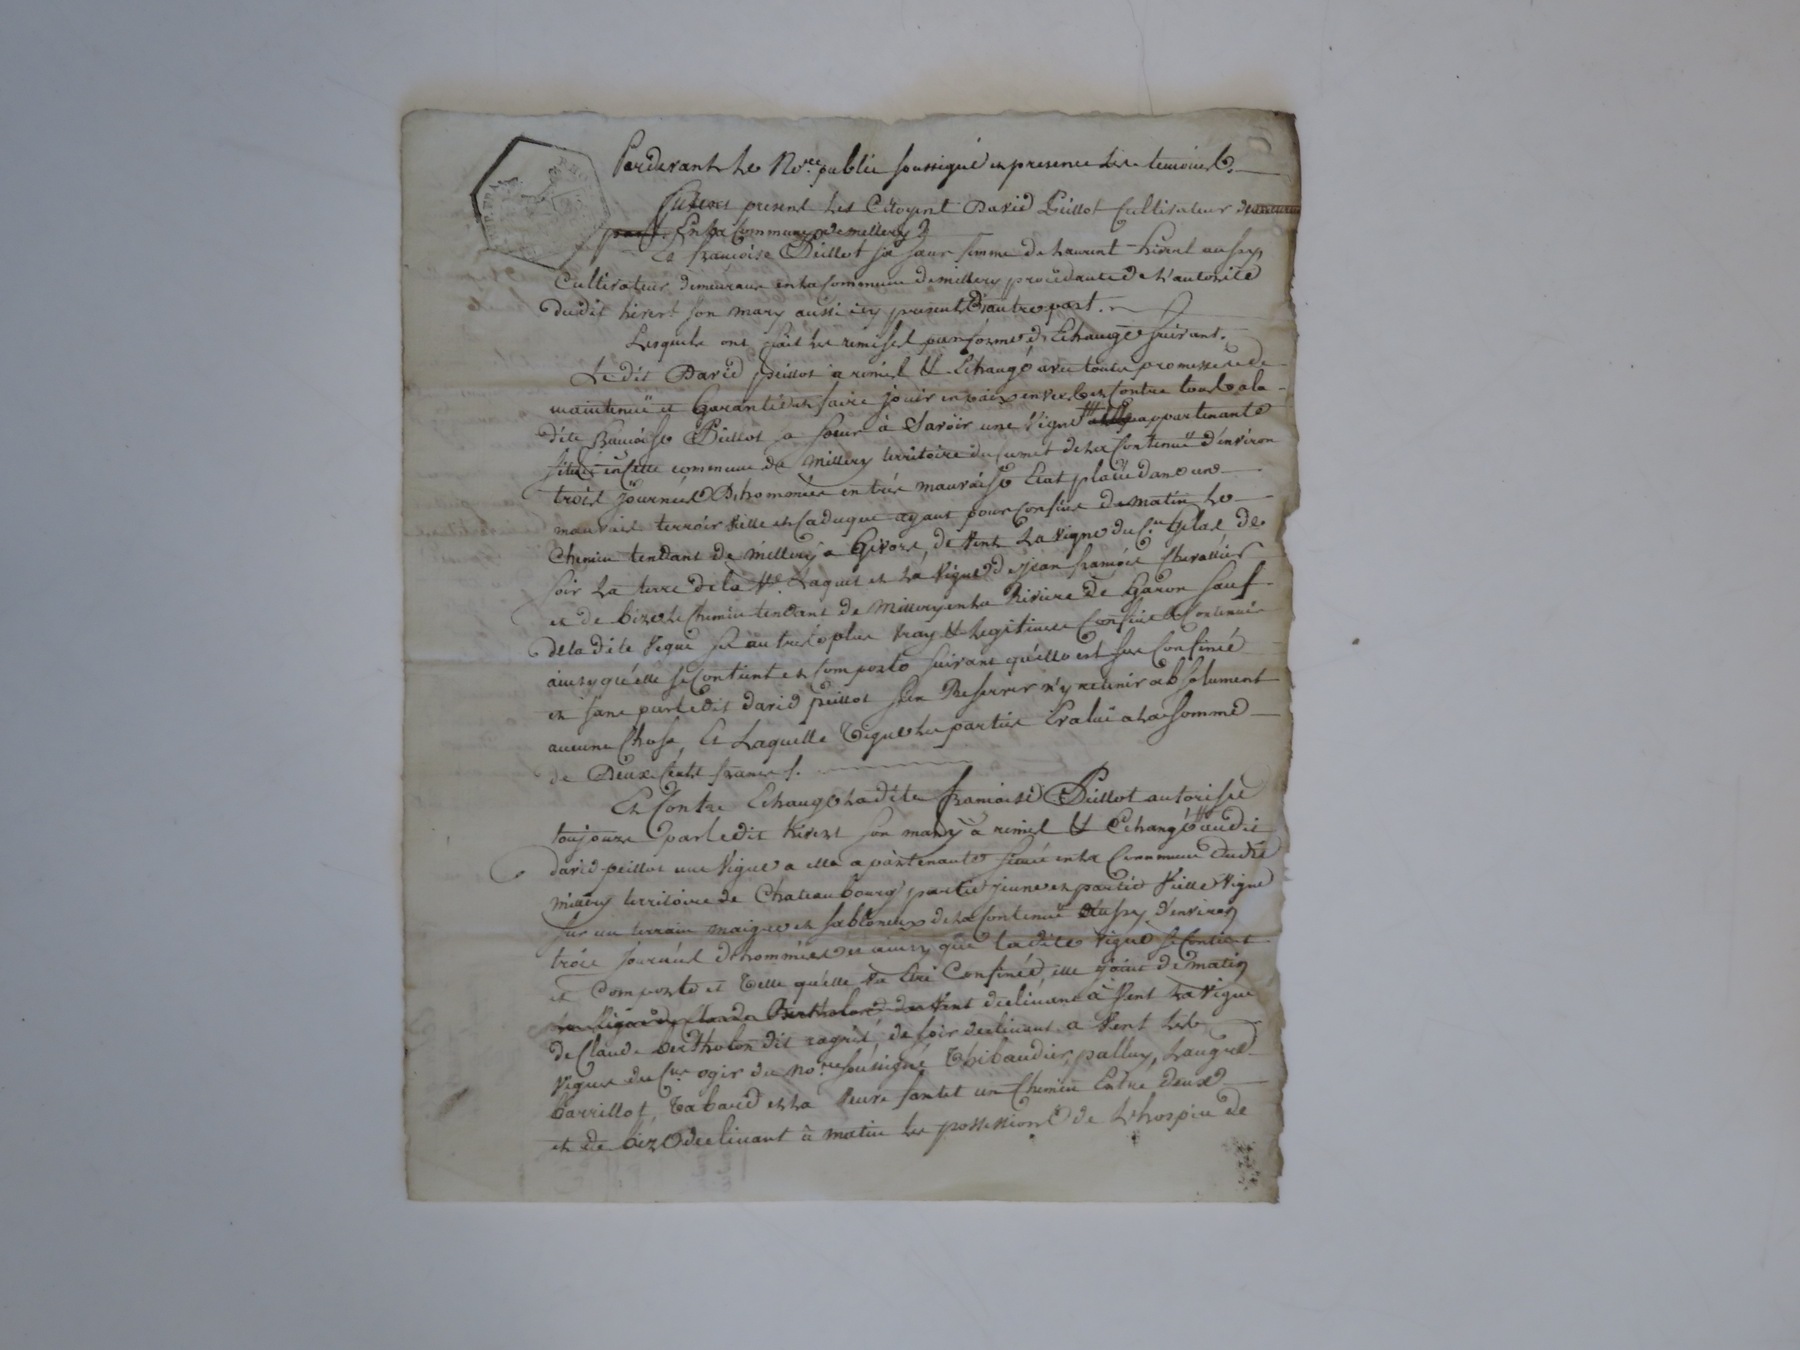 REP. FRA
Pardevant Le No.re public soussigné en presence des temoins &
furent present Les Citoyent David Peillot Cultivateur
En La Commune de millery
Et francoise Peillot sa sœur femme de Laurent hivert aussy
Cultivateur demeurant en La Commune de millery procédante de L'autorité
dudit hivert son mary aussi icy present D'autre part.
Lesquels ont fait Les remises par forme d'Echange suivant.
Le dit David peillot a remis & Echangé avec toutes promesses de
maintenue et Garantie et faire jouir en paix envers et Contre tous a la
dite francoise Peillot sa soeur à Savoir une vigne appartenante
située en cette commune de Millery territoire du cumet de La Contenue d'environ
trois journées D'homenées en très mauvaise Etat placée dans une
mauvais terroir vielle et Caduque ayant pour Confins de matin Le
Chemin tendant de millery a Givors, de vent La vigne du C.en de
soir La terre de la V.e Laquet et La vigne de jean françois Chevallier
et de bize Le Chemin tendant de Millery en La Riviere de Garon sauf
de la dite vigne ses autres plus vray & Legitimes Confins & Contenue
ainsy qu'elle se Contient et Comporte suivant qu'elle est sus Confinée
et sans par Le dit david peillot s'en Reserver n'y retenir absolument
aucune Chose, Et Laquelle vigne Les parties Evalue a La somme
de Deux Cents francs.
En Contre Echange La dite francoise Peillot autorisée
toujours par Le dit hivert son mary a remis & Echangé audit
david peillot une vigne a elle apartenante située en La Commune dudit
millery territoire de Chateaubourg partie jeune et partie vielle vigne
sur un terrain maigre et sabloneux de La Contenue aussy d'environ
trois journées d'hommées et ainsy que La dite vigne se Contient
et Comporte et Telle qu'elle va Etre Confinée, elle joint de matin
La Vigne de Claude Bertholon declinant à vent La vigne
de Claude Bertholon dit ragnié, de soir declinant a vent Les
vignes du C.en ogir du No.re soussigné Thibaudier, palluy, Laugre
barrillot, Tabard et La veuve fantet un Chemin Entre deux
et de bize declinant à matin Les possessions de Lhospice de